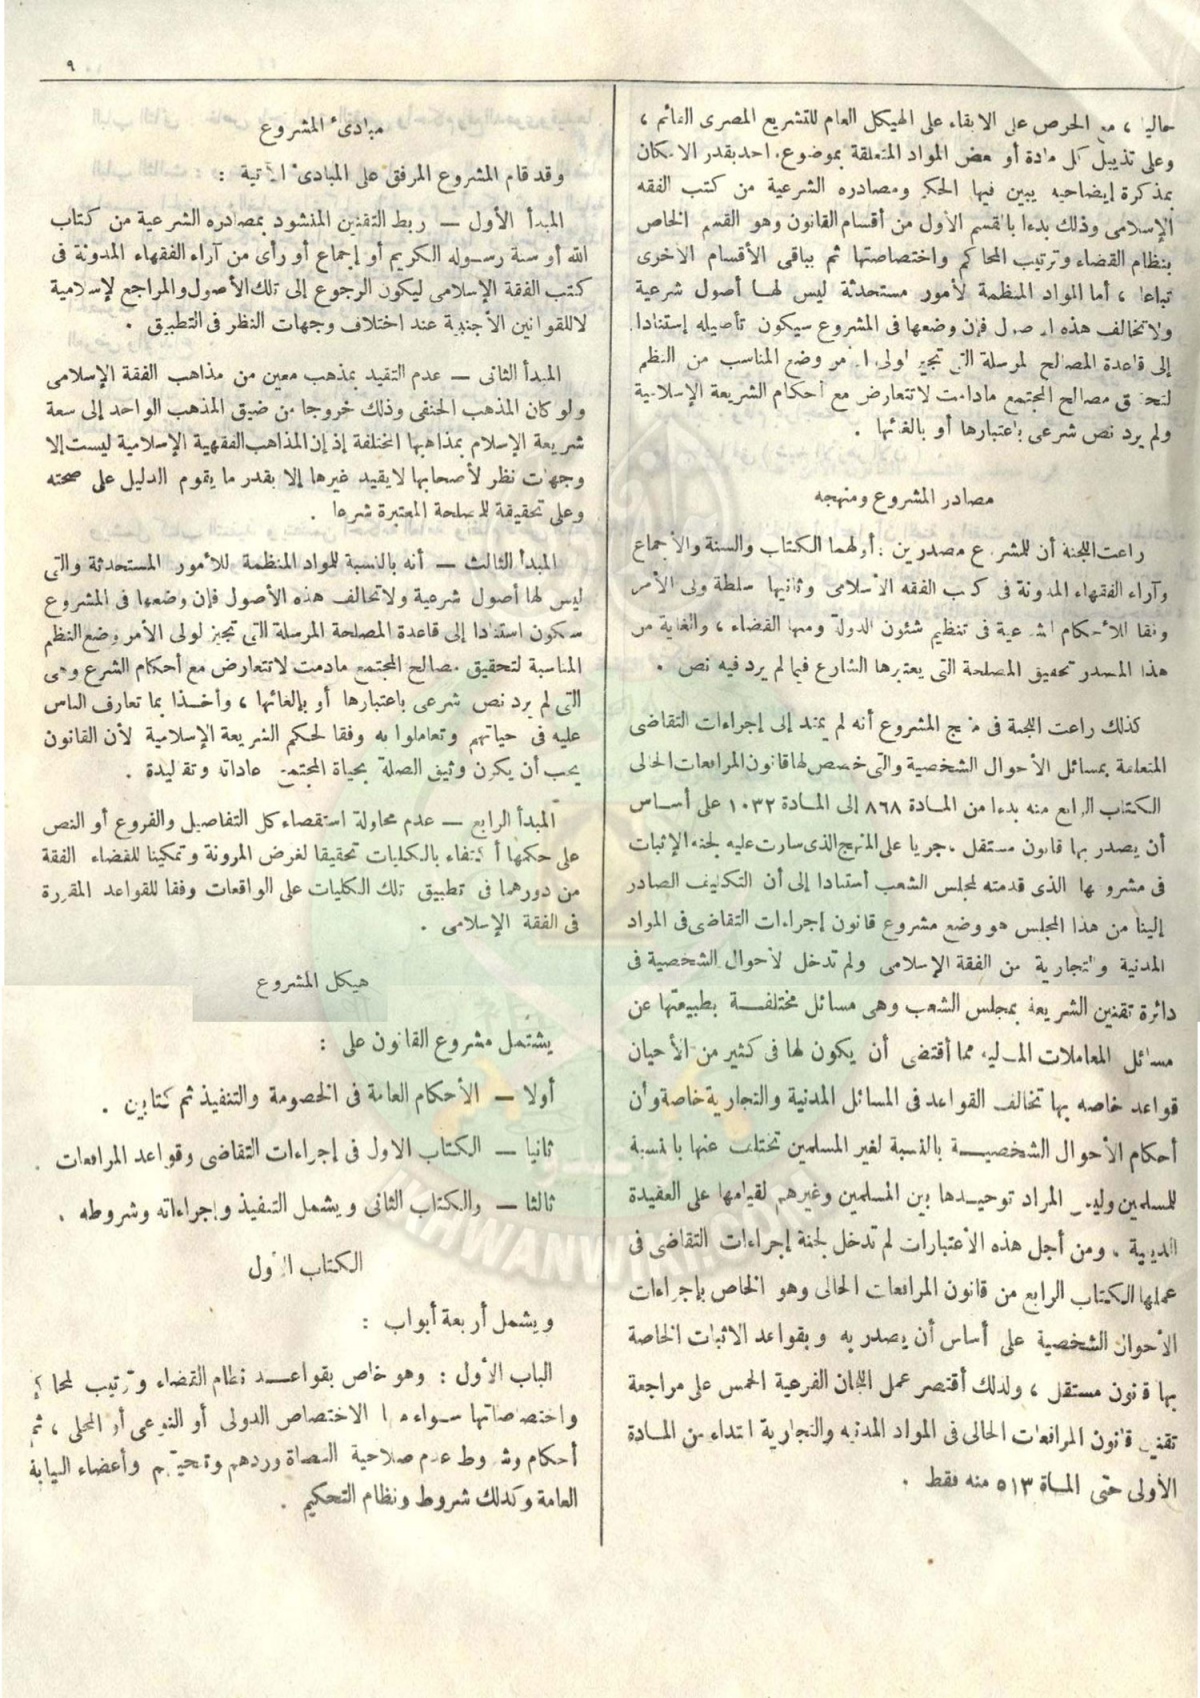 ٩
حاليا ، مع الحرص على الابقاء على الهيكل العام للتشريع المصرى القائم ،
وعلى تذييل كل مادة أو بعض المواد المتعلقة بموضوع واحد بقدر الامكان
بمذكرة إيضاحيه يبين فيها الحكم ومصادره الشرعية من كتب الفقه
الإسلامى وذلك بدءا بالقسم الأول من أقسام القانون وهو القسم الخاص
بنظام القضاء وترتيب المحاكم واختصاصتها ثم بباقى الأقسام الاخرى
تباعا ، أما المواد المنظمة لأمور مستحدثة ليس لها أصول شرعية
ولاتخالف هذه الأصول فإن وضعها فى المشروع سيكون تأصيله إستنادا
إلى قاعدة المصالح المرسلة التى تجيز لولى الأمر وضع المناسب من النظم
لتحقيق مصالح المجتمع مادامت لاتتعارض مع أحكام الشريعة الإسلامية
ولم يرد نص شرعى باعتبارها أو بالغائها .
مصادر المشروع ومنهجه
راعت اللجنة أن للمشروع مصدرين : أولهما الكتاب والسنة والاجماع
وآراء الفقهاء المدونة فى كتب الفقه الاسلامى وثانيها سلطة ولى الأمر
وفقا للأحكام الشرعية فى تنظيم شئون الدولة ومنها القضاء ، والغاية من
هذا المصدر تحقيق المصلحة التى يعتبرها الشارع فيما لم يرد فيه نص .
كذلك راعت اللجنة فى منهج المشروع أنه لم يمتد إلى إجراءات التقاضى
المتعلقة بمسائل الأحوال الشخصية والتى خصص لها قانون المرافعات الحالى
الكتاب الرابع منه بدءا من المادة ٨٦٨ إلى المادة ١٠٣٢ على أساس
أن يصدر بها قانون مستقل ، جريا على المنهج الذى سارت عليه لجنة الإثبات
فى مشروعها الذى قدمته لمجلس الشعب أستنادا إلى أن التكليف الصادر
إلينا من هذا المجلس هو وضع مشروع قانون إجراءات التقاضى فى المواد
المدنية والتجارية من الفقة الإسلامى ولم تدخل لأحوال الشخصية فى
دائرة تقنين الشريعة بمجلس الشعب وهى مسائل مختلفة بطبيعتها عن
مسائل المعاملات المالية مما أقتضى أن يكون لها فى كثير من الأحيان
قواعد خاصه بها تخالف القواعد فى المسائل المدنية والتجارية خاصة وأن
أحكام الأحوال الشخصية بالنسبة لغير المسلمين تختلف عنها بالنسبة
للمسلمين وليس المراد توحيدها بين المسلمين وغيرهم لقيامها على العقيدة
الدينية . ومن أجل هذه الأعتبارات لم تدخل لجنة إجراءات التقاضى فى
عملها الكتاب الرابع من قانون المرافعات الحالى وهو الخاص بإجراءات
الأحوال الشخصية على أساس أن يصدر به وبقواعد الاثبات الخاصة
بها قانون مستقل ، ولذلك أقتصر عمل اللجان الفرعية الخمس على مراجعة
تقنين قانون المرافعات الحالى فى المواد المدنيه والتجارية ابتداء من المادة
الأولى حتى المادة ٥١٣ منه فقط .
مبادىء المشروع
وقد قام المشروع المرفق على المبادىء الآتية :
المبدأ الأول — ربط التقنين المنشود بمصادره الشرعية من كتاب
الله أو سنة رسوله الكريم أو إجماع أو رأى من آراء الفقهاء المدونة فى
كتب الفقة الإسلامى ليكون الرجوع إلى تلك الأصول والمراجع لإسلامية
لاللقوانين الأجنبية عند اختلاف وجهات النظر فى التطبيق .
المبدأ الثانى — عدم التقيد بمذهب معين من مذاهب الفقة الإسلامى
ولو كان المذهب الحنفى وذلك خروجا من ضيق المذهب الواحد إلى سعة
شريعة الإسلام بمذاهبها المختلفة إذ إن المذاهب الفقهية الإسلامية ليست إلا
وجهات نظر لأصحابها لايقيد غيرها إلا بقدر ما يقوم الدليل على صحته
وعلى تحقيقة للمصلحة المعتبرة شرعا .
المبدأ الثالث — أنه بالنسبة للمواد المنظمة للأمور المستحدثة والتى
ليس لها أصول شرعية ولاتخالف هذه الأصول فإن وضعها فى المشروع
سيكون استنادا إلى قاعدة المصلحة المرسلة التى تجيز لولى الأمر وضع النظم
المناسبة لتحقيق مصالح المجتمع مادمت لاتتعارض مع أحكام الشرع وهى
التى لم يرد نص شرعى باعتبارها أو بإلغائها ، وأخذا بما تعارف الناس
عليه فى حياتهم وتعاملوا به وفقا لحكم الشريعة الإسلامية لأن القانون
يجب أن يكون وثيق الصلة بحياة المجتمع عاداته وتقاليدة .
المبدأ الرابع — عدم محاولة استقصاء كل التفاصيل والفروع أو النص
على حكمها أكتفاء بالكليات تحقيقا لغرض المرونة وتمكينا للقضاء الفقة
من دورهما فى تطبيق تلك الكليات على الواقعات وفقا للقواعد المقررة
فى الفقة الإسلامى .
هيكل المشروع
يشتمل مشروع القانون على :
أولا — الأحكام العامة فى الخصومة والتنفيذ ثم كتابين .
ثانيا — الكتاب الاول فى إجراءات التقاضى وقواعد المرافعات .
ثالثا — والكتاب الثانى ويشمل التنفيذ وإجراءاته وشروطه .
الكتاب الأول
ويشمل أربعة أبواب :
الباب الأول : وهو خاص بقواعد نظام القضاء وترتيب لمحاكم
واختصاصاتها سواء منها الاختصاص الدولى أو النوعى أو المحلى ، ثم
أحكام وشروط عدم صلاحية القضاة وردهم وتنحيتهم وأعضاء النيابة
العامة وكذلك شروط ونظام التحكيم .
IKHWANWIKI.COM